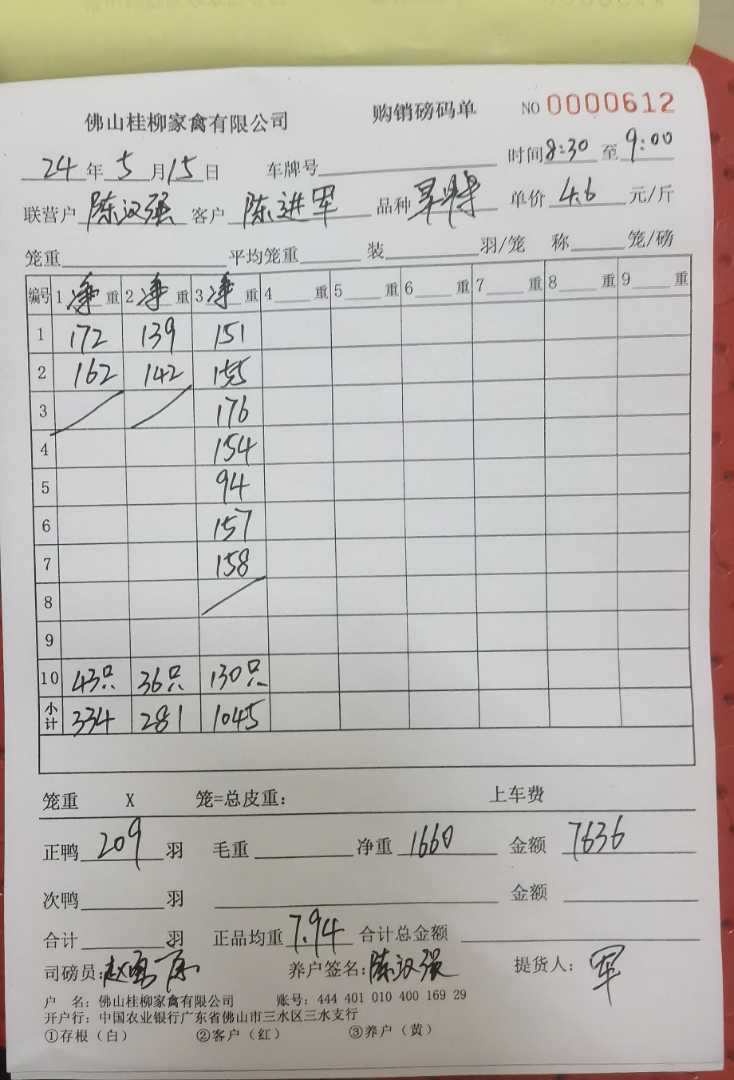 佛山桂柳家禽有限公司 购销磅码单 NO 0000612
24 年 5 月 15 日 车牌号 时间 8:30 至 9:00
联营户 陈汉强 客户 陈进军 品种 单价 4.6 元/斤
笼重 平均笼重 装 羽/笼 称 笼/磅
编号 1 净 重 2 净 重 3 净 重 4 重 5 重 6 重 7 重 8 重 9 重
1 172 139 151
2 162 142 155
3 176
4 154
5 94
6 157
7 158
8
9
10 43只 36只 130只
小计 334 281 1045
笼重 X 笼=总皮重: 上车费
正鸭 209 羽 毛重 净重 1660 金额 7636
次鸭 羽 金额
合计 羽 正品均重 7.94 合计总金额
司磅员: 养户签名: 陈汉强 提货人: 军
户 名: 佛山桂柳家禽有限公司 账号: 444 401 010 400 169 29
开户行: 中国农业银行广东省佛山市三水区三水支行
①存根(白) ②客户(红) ③养户(黄)